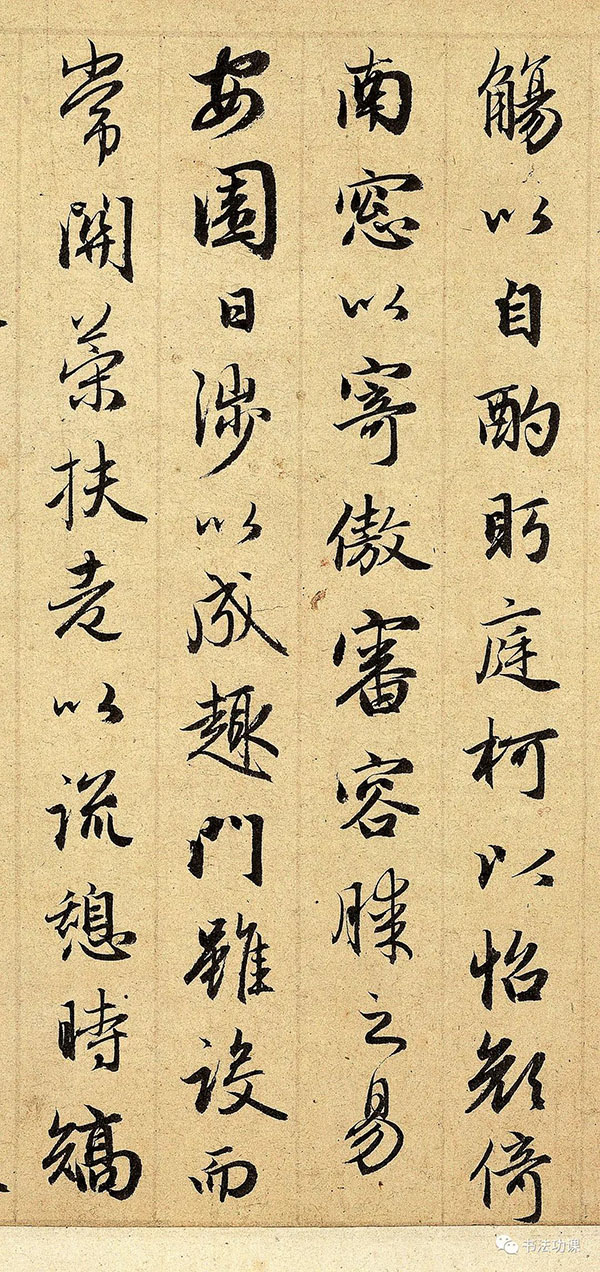 觴以自酌眄庭柯以怡顔倚
南窓以寄傲審容膝之易
安園日涉以成趣門雖設而
常關策扶老以流憩時矯
书法功课